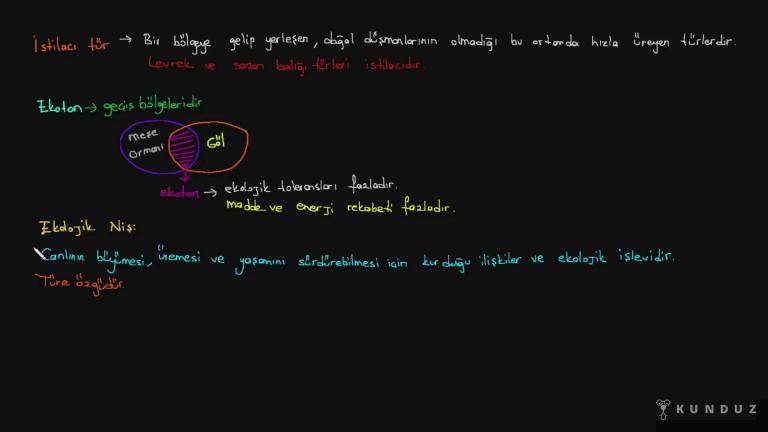 İstilacı tür → Bir bölgeye gelip yerleşen, doğal düşmanlarının olmadığı bu ortamda hızla üreyen türlerdir.
Levrek ve sazan balığı türleri istilacıdır.
Ekoton → geçiş bölgeleridir
Meşe Ormanı
Göl
ekoton → ekolojik toleransları fazladır.
madde ve enerji rekabeti fazladır.
Ekolojik Niş:
Canlının büyümesi, üremesi ve yaşamını sürdürebilmesi için kurduğu ilişkiler ve ekolojik işlevidir.
Türe özgüdür.
KUNDUZ